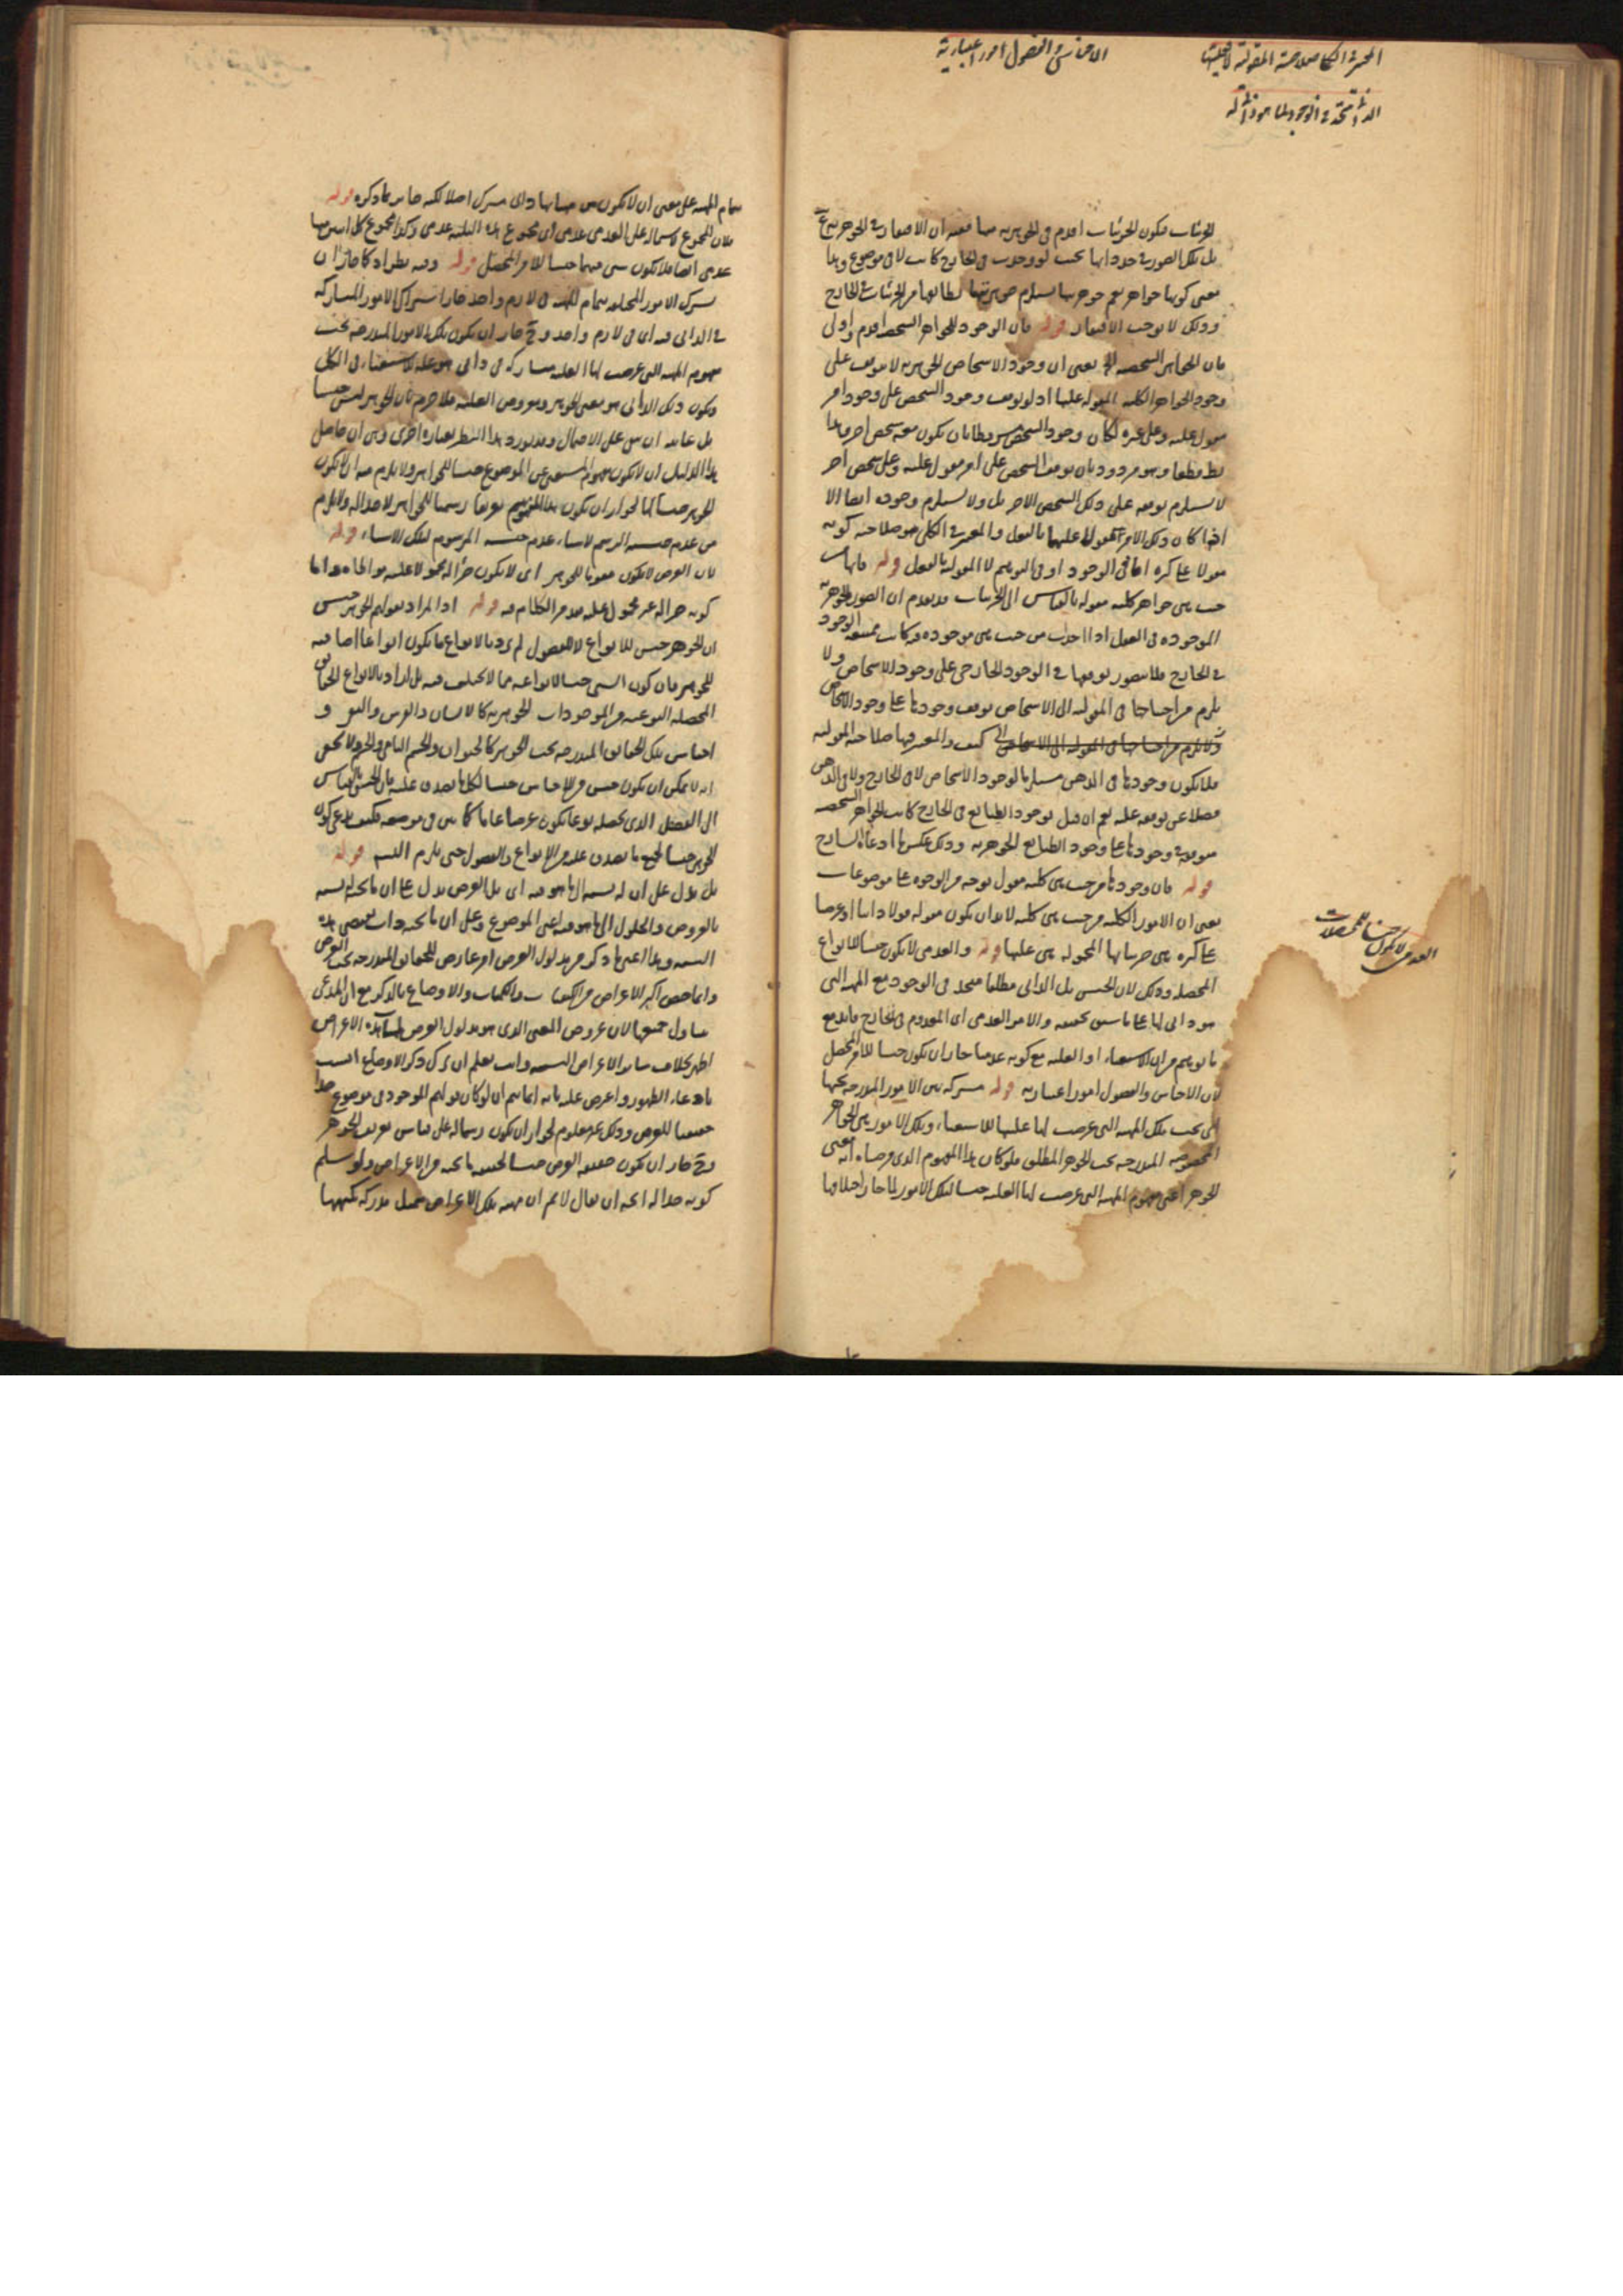 المعتبر في الكلي صلاحية المقولية لا فعليتها
الذاتي متحد في الوجود لما هو ذاتي له
الاجناس والفصول امور اعتبارية
الجزئيات فيكون الجزئيات اقدم في الجوهرية منها
بل تلك الصور في حد ذاتها بحيث لو وجدت في الخارج كانت لا في موضوع وهذا
معنى كونها جواهر نعم جوهريتها يستلزم جوهرية
وذلك لا يوجب الافتقار قوله فان الوجود للجواهر الشخصية اقدم واولى
فان الجواهر الشخصية يعنى ان وجود الاشخاص الجوهرية لا يتوقف على
وجود الجواهر الكلية المقولة عليها اذ لو توقف وجود الشخص على وجود امر
مقول عليه وعلى غيره لكان وجود الشخص مشروطا بان يكون معه شخص اخر وهذا
بط قطعا وهو مردود بان توقف الشخص على امر مقول عليه وعلى شخص اخر
لا يستلزم توقفه على ذلك الشخص الاخر بل ولا يستلزم وجوده ايضا الا
اذا كان ذلك الامر مقولا عليهما بالفعل والمعتبر في الكلي هو صلاحية كونه
مقولا على كثيرة اما في الوجود او في التوهم لا المقولية بالفعل قوله فانها من
حيث هي جواهر كلية مقولة بالقياس الى الجزئيات قد تقدم ان الصور الجوهرية
الموجودة في العقول اذا اخذت من حيث هي موجودة فيه كانت ممتنعة الوجود
في الخارج فلا يتصور توقفها في الوجود الخارجي على وجود الاشخاص ولا
يلزم من احتياجها في المقولية الى الاشخاص توقف وجودها على وجود الاشخاص
كيف والمعتبر فيها صلاحية المقولية
فلا يكون وجودها في الذهن مستلزما لوجود الاشخاص لا في الخارج ولا في الذهن
فضلا عن توقفه عليه نعم ان قيل بوجود الطبائع في الخارج كانت الجواهر الشخصية
متوقفة وجودها على وجود الطبائع الجوهرية وذلك عكس ما ادعاه الشارح
قوله فان وجودها من حيث هي كلية مقول بوجه من الوجوه على موضوعات
يعنى ان الامور الكلية من حيث هي كلية لا بد ان يكون مقولة قولا ذاتيا او عرضيا
على كثيرة هي جزئياتها المحمولة هي عليها قوله والعدمى لا يكون جنسا للانواع
المحصلة وذلك لان الجنس بل الذاتي مطلقا متحد في الوجود مع المهية التى
هو ذاتي لها على ما سبق تحقيقه والامر العدمى اى المعدوم في الخارج فاندفع
ما توهم من ان الاستغناء او العلية مع كونه عدميا جاز ان يكون جنسا للامر المحصل
لان الاجناس والفصول امور اعتبارية قوله مشتركة بين الامور المندرجة تحتها
اى تحت تلك المهية التى عرضت لها علية الاستغناء وتلك الامور هي الجواهر
المخصوصة المندرجة تحت الجوهر المطلق فلو كان هذا المفهوم الذى فرضناه انه معنى
الجوهر اعنى مفهوم المهية التى عرضت لها العلية جنسا لتلك الامور لما جاز اختلافها
العدمى لا يكون جنسا للمحصلات
بتمام المهية على معنى ان لا يكون بين مهياتها ذاتي مشترك اصلا لكنه جائز كما ذكره قوله
فلان المجموع لاشتماله على العدمى عدمى اى مجموع هذه الثلثة عدمى وكذا مجموع كل اثنين منها
عدمى ايضا فلا يكون شى منهما جنسا للامر المحصل قوله وفيه نظر اذ كما جاز ان
يشترك الامور المختلفة بتمام المهية في لازم واحد جاز اشتراك الامور المتشاركة
في الذاتى في لازم واحد وح جاز ان يكون تلك الامور المندرجة تحت
مفهوم المهية التى عرضت لها العلية متشاركة في ذاتى هو علة الاستغناء في الكل
ويكون ذلك الذاتى هو معنى الجوهر
بل غايته ان يبقى على الاحتمال وقد يورد هذا النظر بعبارة اخرى وهى ان حاصل
هذا الدليل ان لا يكون مفهوم المستغنى عن الموضوع جنسا للجواهر ولا يلزم منه ان لا يكون
الجوهر جنسا لها لجواز ان يكون هذا المفهوم تعريفا رسميا للجواهر لا حدا له ولا يلزم
من عدم جنسية الرسم لاشياء عدم جنسية المرسوم لتلك الاشياء قوله
لان العرض لا يكون مقوما للجوهر اى لا يكون جزءا له محمولا عليه مواطاة واما
كونه جزءا له غير محمول عليه فقد مر الكلام فيه قوله اذ المراد بقولهم الجوهر جنس
ان الجوهر جنس للانواع لا للفصول لم يرد بالانواع ما يكون انواعا اضافية
للجوهر فان كون الشى جنسا لانواعه مما لا يختلف فيه بل اراد بالانواع الحقائق
المحصلة النوعية من الموجودات الجوهرية كالانسان والفرس والبقر و
اجناس تلك الحقائق المندرجة تحت الجوهر كالحيوان والجسم النامى والجسم ولا يخفى
انه لا يمكن ان يكون جنس من الاجناس جنسا لكل ما يصدق عليه فان الجنس بالقياس
الى الفصل الذى يحصله نوعا يكون عرضا عاما كما بين في موضعه فكيف يدعى كون
الجوهر جنسا لجميع ما يصدق عليه من الانواع والفصول حتى يلزم التسلسل قوله
بل يدل على ان له نسبة الى ما هو فيه اى بل العرض يدل على ان ما تحته له نسبة
بالعروض والحلول الى ما هو فيه اعنى الموضوع وعلى ان ما تحته ذات تقتضى هذه
النسبة وهذا اعنى ما ذكر من مدلول العرض امر عارض للحقائق المندرجة تحت العرض
وانما خص اكثر الاعراض من الكيفيات والكميات والاوضاع بالذكر مع ان المدعى
يتناول جميعها لان عروض المعنى الذى هو مدلول العرض لهذه الاعراض
اظهر بخلاف سائر الاعراض النسبية وانت تعلم ان ترك ذكر الاوضاع انسب
بادعاء الظهور واعترض عليه بانه انما يتم ان لو كان قولهم الموجود في موضوع حدا
حقيقيا للعرض وذلك غير معلوم لجواز ان يكون رسما له على قياس تعريف الجوهر
وح جاز ان يكون حقيقة العرض جنسا لحقيقة ما تحته من الاعراض ولو سلم
كونه حدا له اتجه ان يقال لا نم ان مهية تلك الاعراض متمثلة مدركة بكنهها